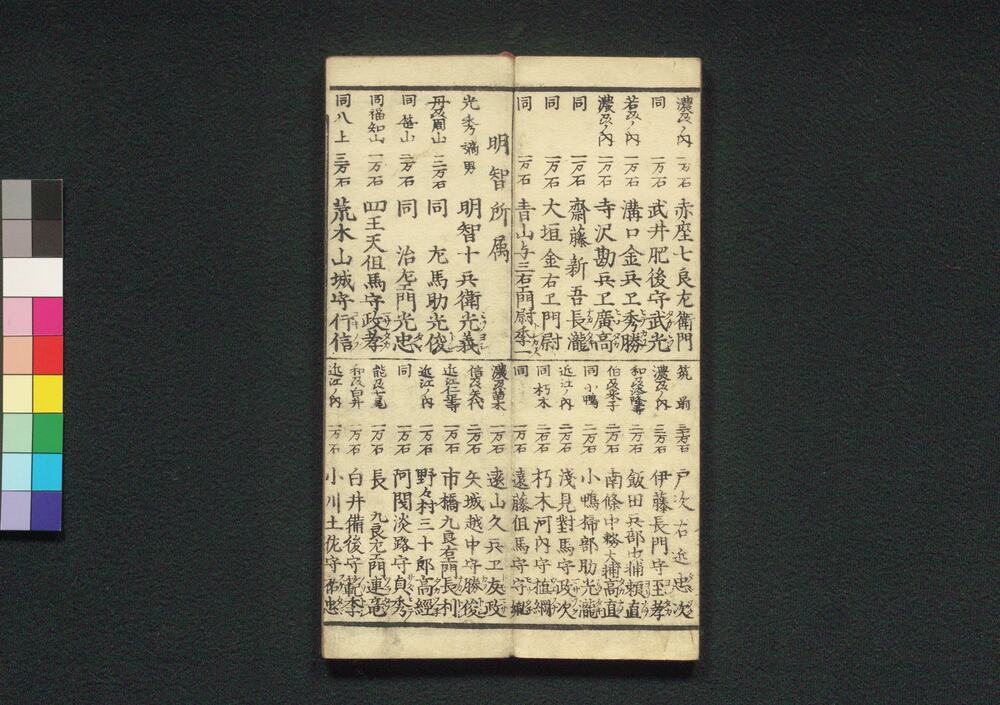 濃州ノ内 一万石 赤座七良左衛門
同 一万石 武井肥後守武光
若州ノ内 一万石 溝口金兵ヱ秀勝
濃州ノ内 一万石 寺沢勘兵ヱ廣高
同 一万石 齋藤新吾長瀧
同 一万石 大垣金右ヱ門尉
同 一万石 青山与三右ヱ門尉季一
筑前 三万石 戸次右近忠次
濃州ノ内 三万石 伊藤長門守至孝
和州 二万石 飯田兵部少輔頼直
伯州米子 二万石 南條中務大輔高直
同小鴨 二万石 小鴨掃部助光瀧
近江ノ内 二万石 淺見對馬守政次
同朽木 二万石 朽木河内守植綱
同 一万石 遠藤但馬守守
明智所属
光秀嫡男 明智十兵衛光義
丹州周山 三万石 同 左馬助光俊
同笹山 二万石 同 治左ヱ門光忠
同福知山 一万石 四王天但馬守政孝
同八上 三万石 荒木山城守行信
濃州苗木 一万石 遠山久兵ヱ友政
信州矢代 二万石 矢城越中守勝俊
近江仁正寺 一万石 市橋九良右ヱ門長利
近江ノ内 一万石 野々村三十郎高經
同 一万石 阿閉淡路守貞秀
能州七尾 一万石 長 九良左ヱ門連竜
和州白井 一万石 白井備後守範季
近江ノ内 一万石 小川土佐守祐忠